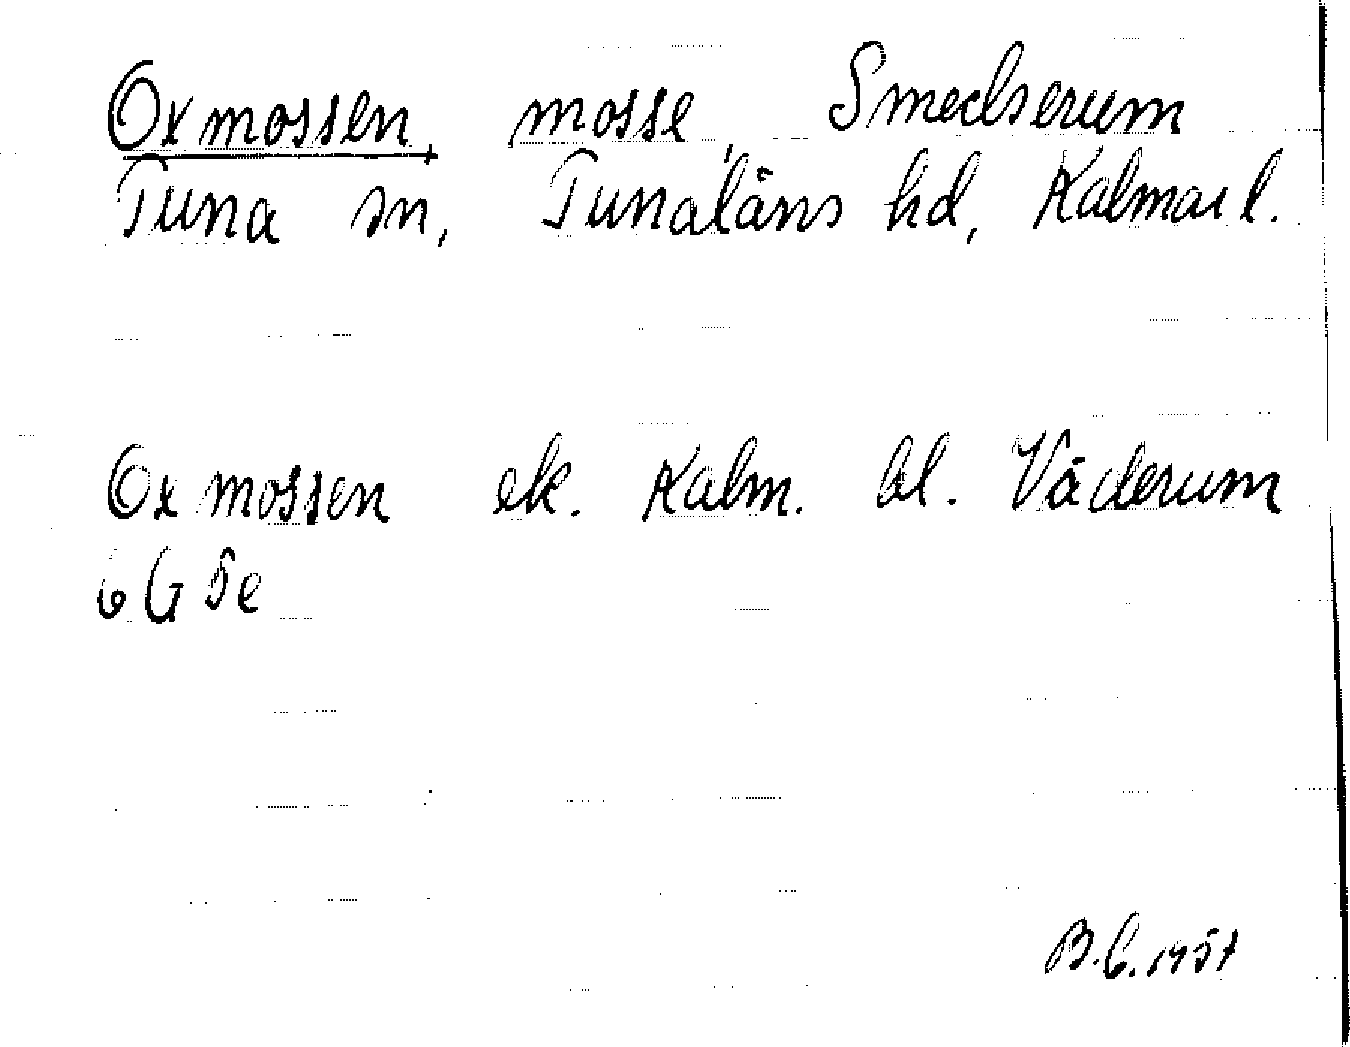 Oxmossen, mosse, Smedserum
Tuna sn, Tunaläns hd, Kalmar l.
Oxmossen ek. Kalm. bl. Väderum
6G 5e
B.C. 1957